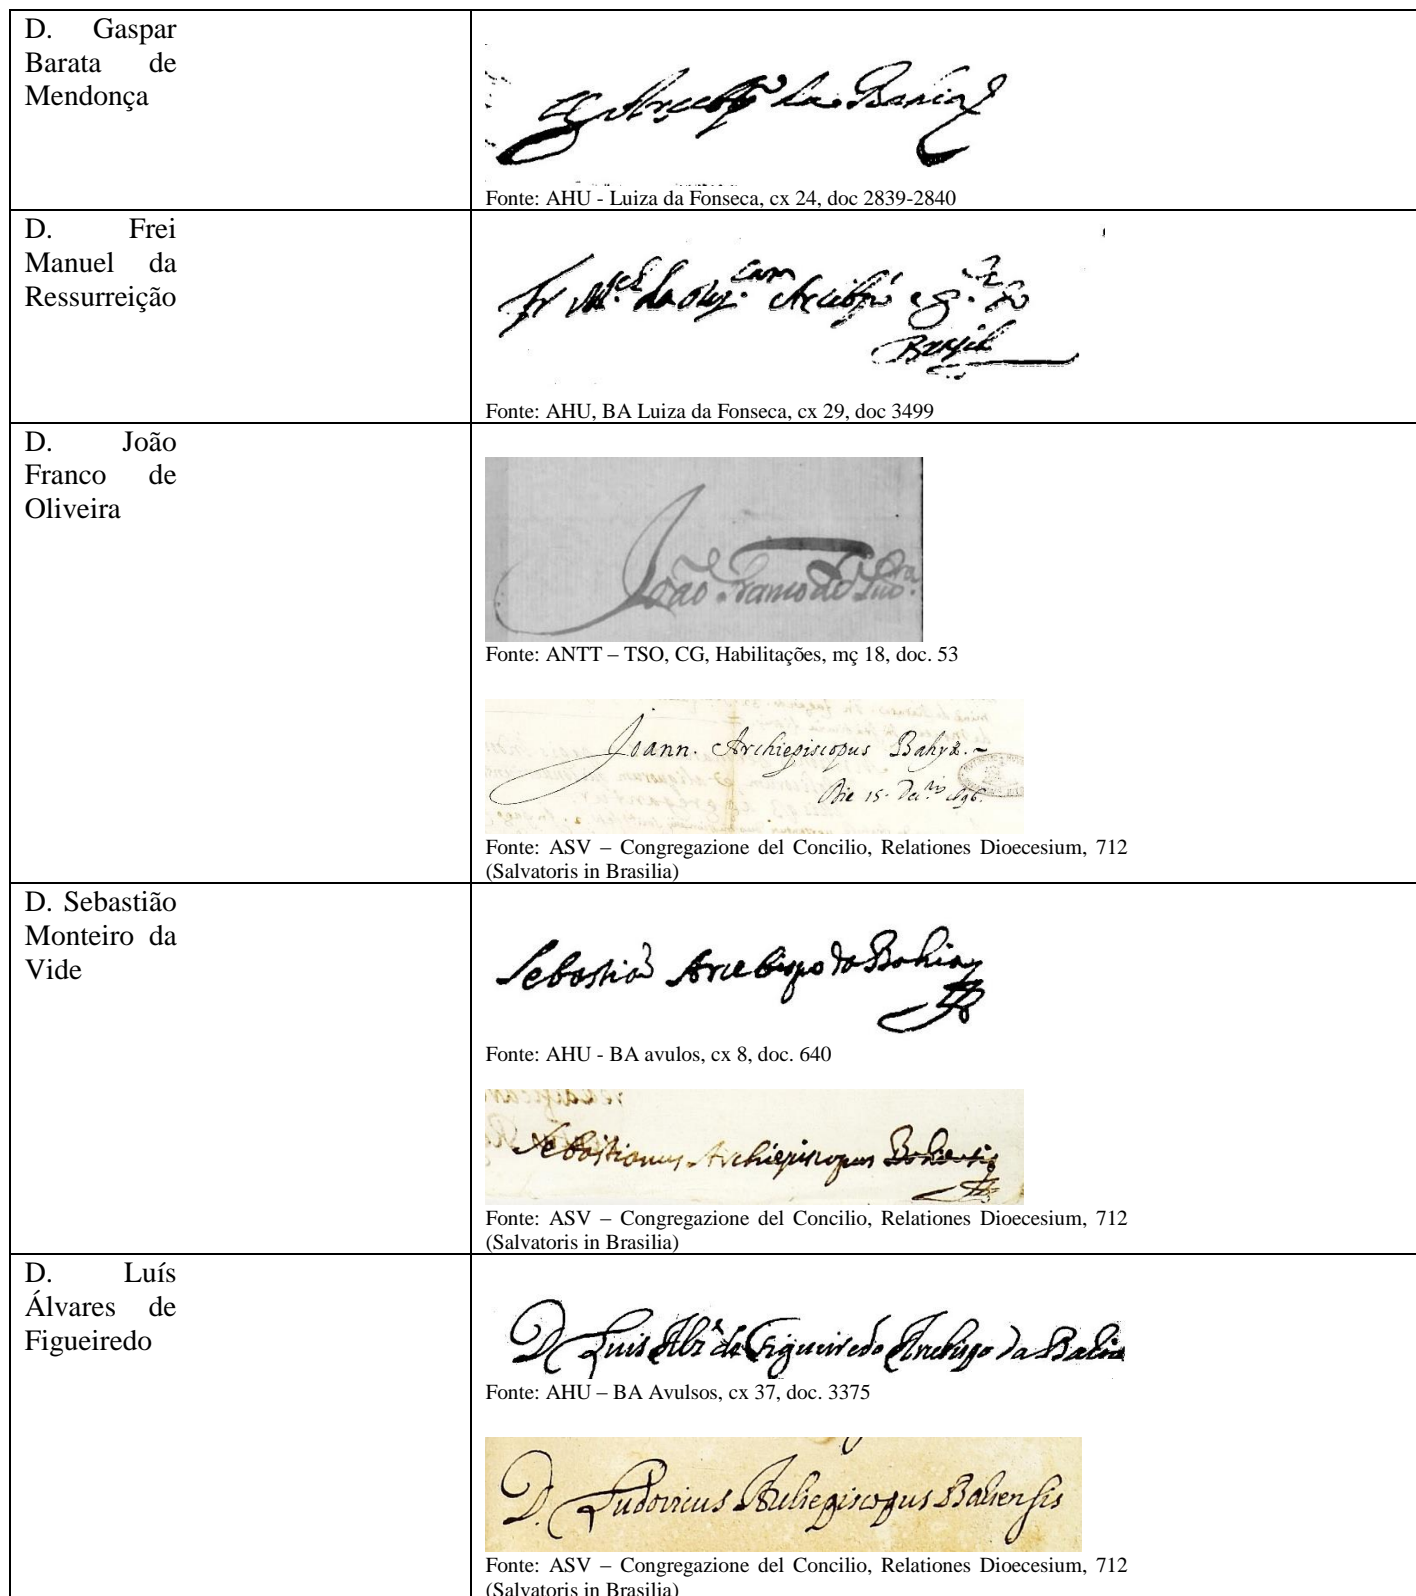 D. Gaspar
Barata de
Mendonça
Arcebpo da Bahia
Fonte: AHU - Luiza da Fonseca, cx 24, doc 2839-2840
D. Frei
Manuel da
Ressurreição
Fr M.el da
Brasil
Fonte: AHU, BA Luiza da Fonseca, cx 29, doc 3499
D. João
Franco de
Oliveira
João Franco de Oliv.ra
Fonte: ANTT – TSO, CG, Habilitações, mç 18, doc. 53
Joann. Archiepiscopus Bahyæ.
Die 15. Dec.ris 1696.
Fonte: ASV – Congregazione del Concilio, Relationes Dioecesium, 712
(Salvatoris in Brasilia)
D. Sebastião
Monteiro da
Vide
Sebastiaõ Arcebispo da Bahia
Fonte: AHU - BA avulos, cx 8, doc. 640
Sebastianus Archiepiscopus Bahiensis
Fonte: ASV – Congregazione del Concilio, Relationes Dioecesium, 712
(Salvatoris in Brasilia)
D. Luís
Álvares de
Figueiredo
D. Luis Alz de Figueiredo Arcebispo da Bahia
Fonte: AHU – BA Avulsos, cx 37, doc. 3375
D. Ludovicus Archiepiscopus Bahiensis
Fonte: ASV – Congregazione del Concilio, Relationes Dioecesium, 712
(Salvatoris in Brasilia)